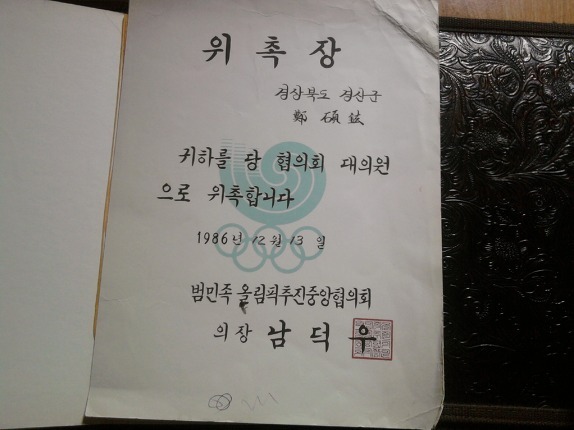 위 촉 장
경상북도 경산군
鄭 碩
귀하를 당 협의회 대의원
으로 위촉합니다
1986년 12월 13일
범민족 올림픽추진중앙협의회
의장 남덕우